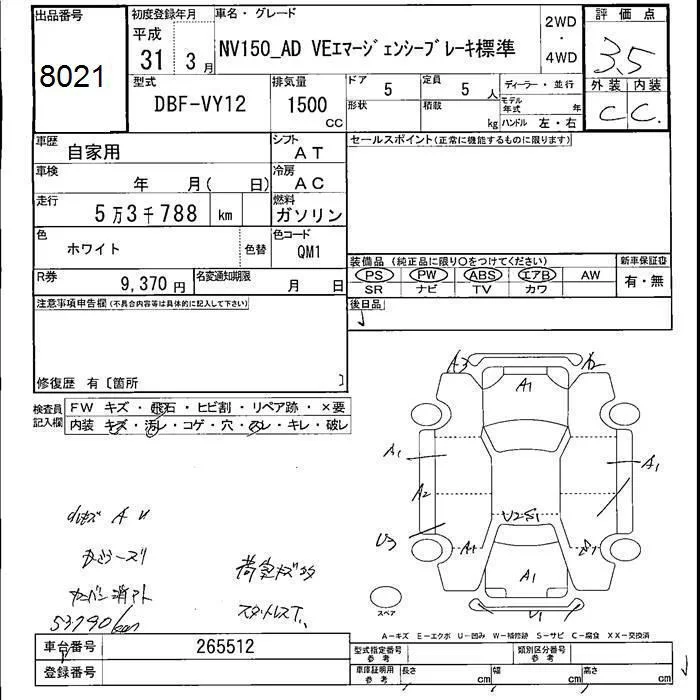 出品番号 初度登録年月 車名・グレード 2WD ・ 4WD 評価点
8021 平成 31 3月 NV150_AD VEエマージェンシーブレーキ標準 3.5
型式 排気量 ドア 5 定員 5人 ディーラー・並行 外装 内装
DBF-VY12 1500 CC 形状 積載 kg モデル年式 年 ハンドル 左・右 C C.
車歴 自家用 シフト AT セールスポイント(正常に機能するものに限ります)
車検 年 月( 日) 冷房 AC
走行 5万3千788 km 燃料 ガソリン
色 ホワイト 色替 色コード QM1
装備品 (純正品に限り〇をつけてください) 新車保証書
R券 9,370円 名変通知期限 月 日 PS PW ABS エアB AW 有・無
SR ナビ TV カワ
注意事項申告欄(不具合内容等は具体的に記入して下さい) 後日品
修復歴 有〔箇所 〕
検査員記入欄 FW キズ・飛石・ヒビ割・リペア跡・×要
内装 キズ・汚レ・コゲ・穴・スレ・キレ・破レ
A3 A2
A1
A1 A1
A2
U2-S1
U3 A1
A1
スペア U1
A U
53790km
スタットレスT
A-キズ E-エクボ U-凹み W-補修跡 S-サビ C-腐食 XX-交換済
車台番号 265512 型式指定番号 参考 類別区分番号 参考
登録番号 車庫証明用 参考 長さ cm 幅 cm 高さ cm